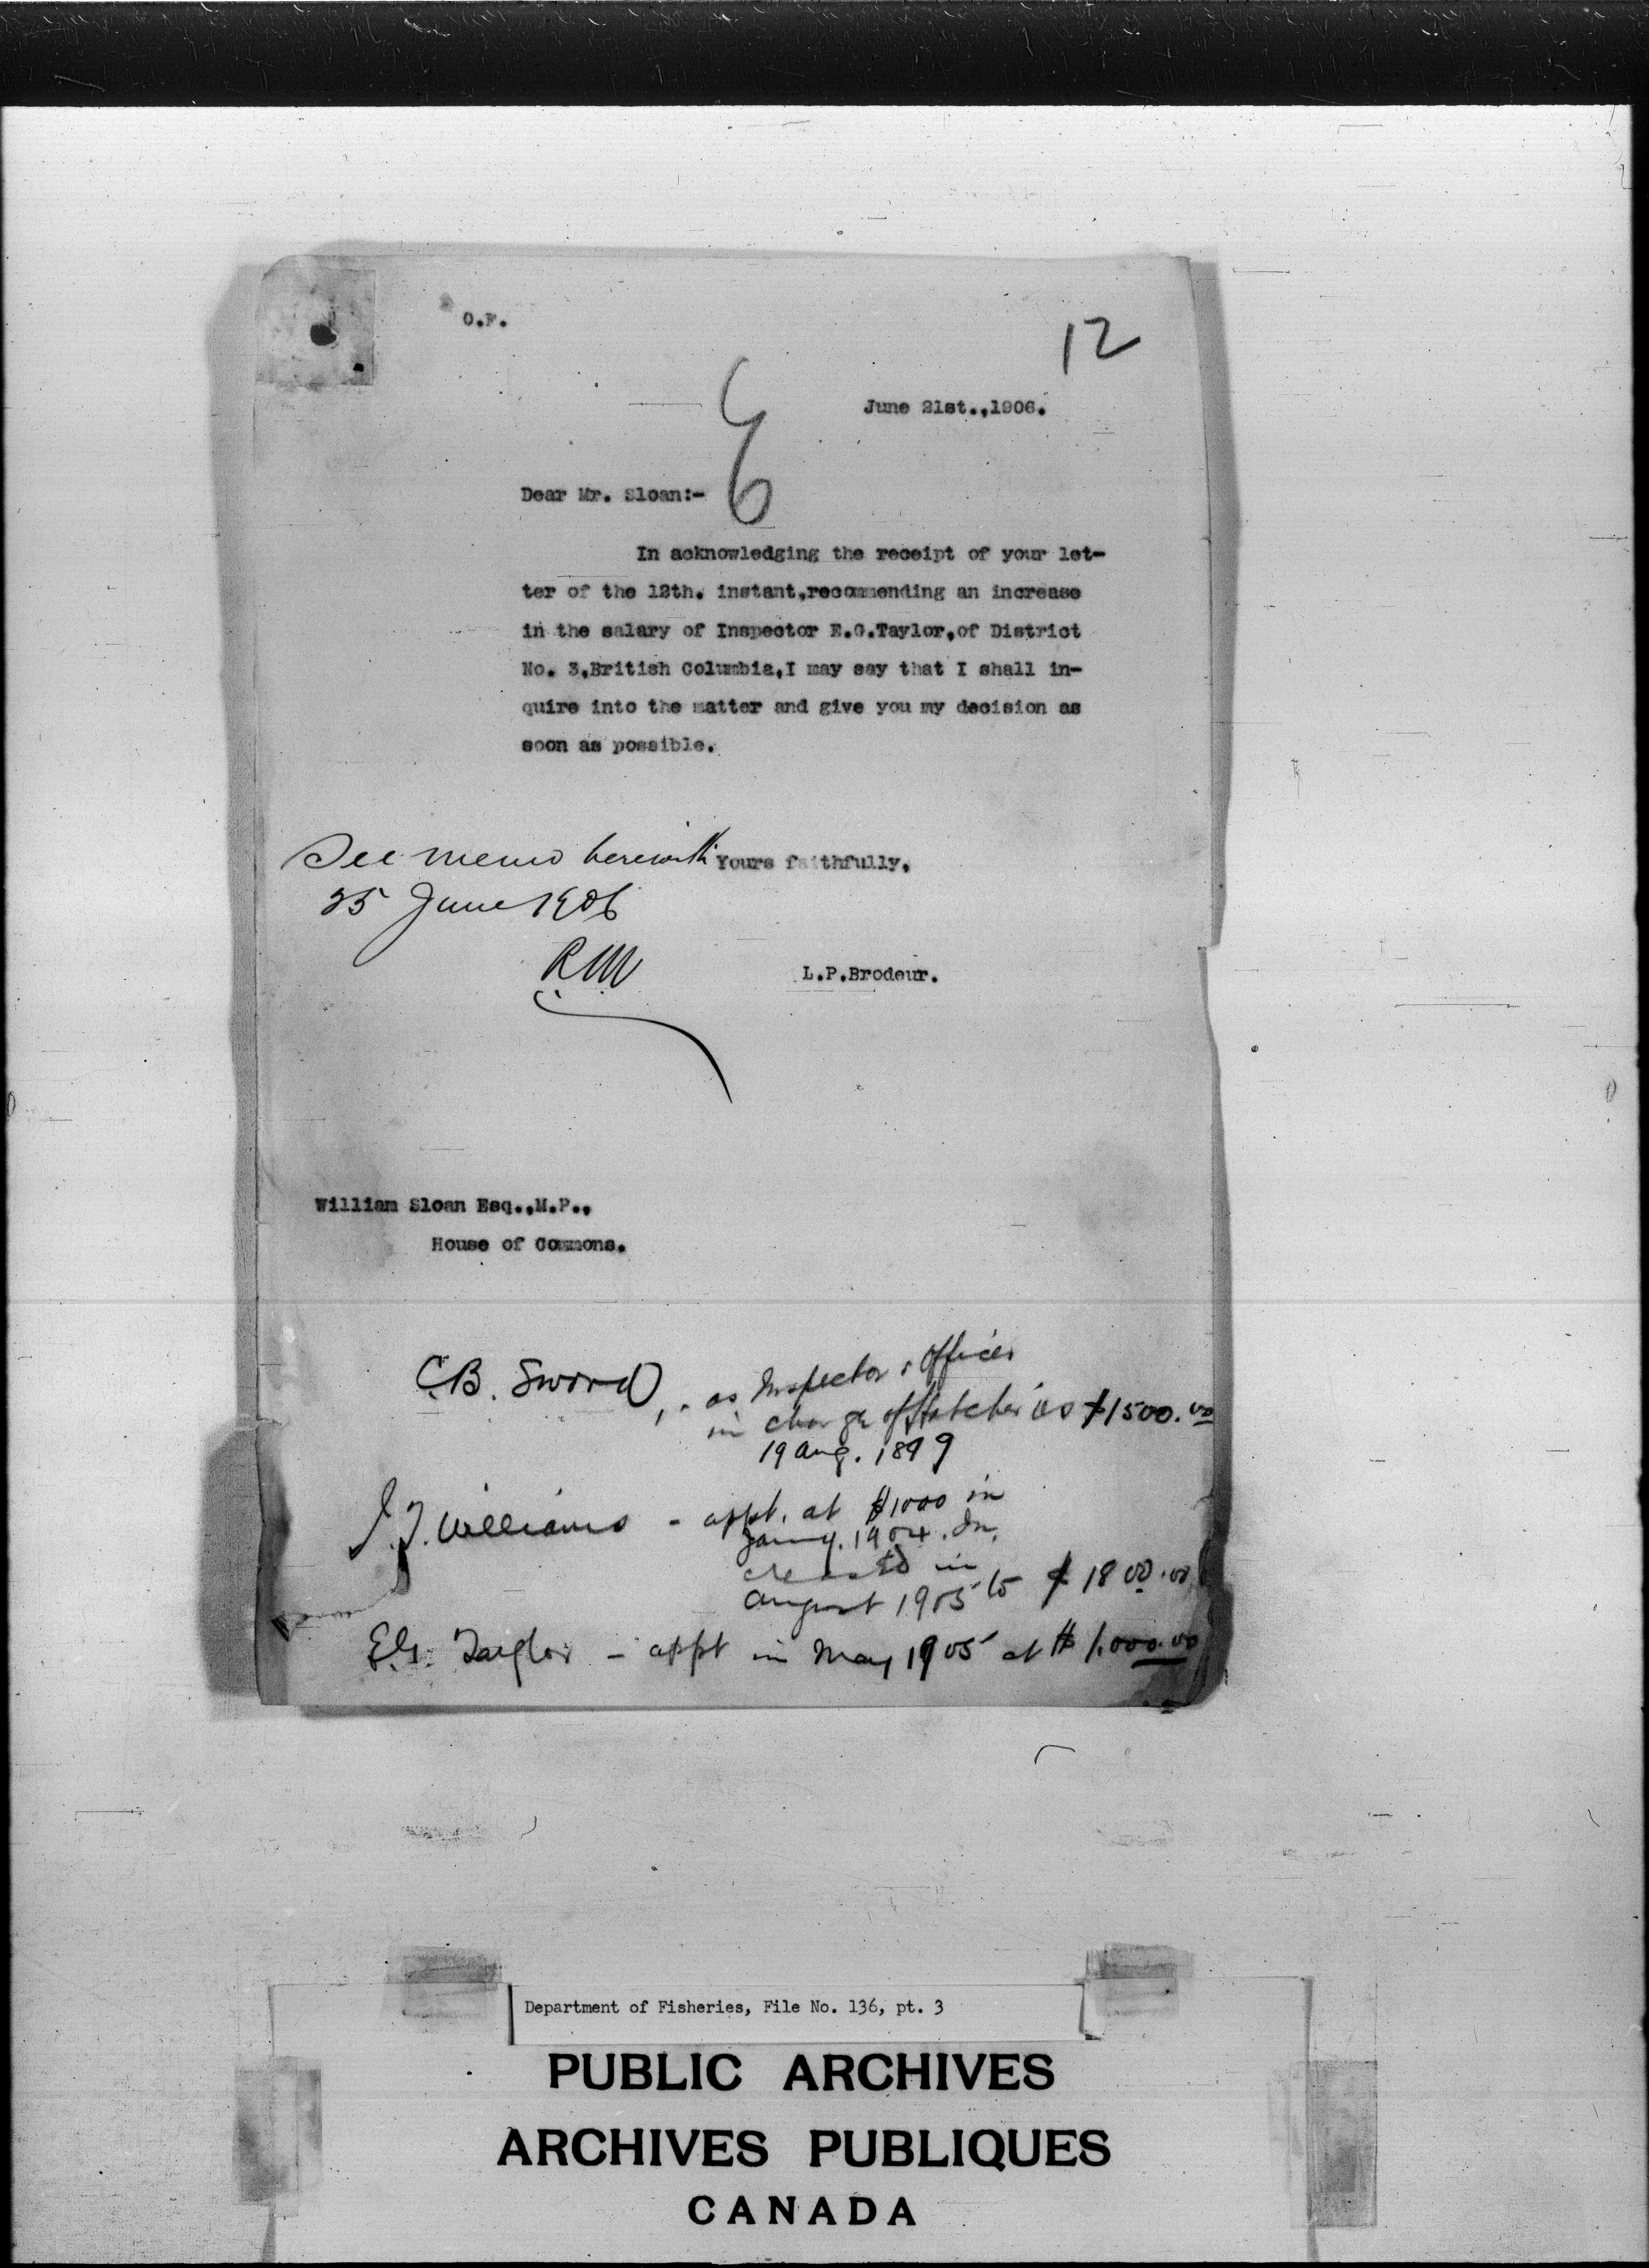 O.F.
12
June 21st.,1906.
6
Dear Mr. Sloan:-
In acknowledging the receipt of your let-
ter of the 12th. instant,recommending an increase
in the salary of Inspector E.G.Taylor,of District
No. 3,British Columbia,I may say that I shall in-
quire into the matter and give you my decision as
soon as possible.
See memo herewith Yours faithfully,
25 June 1906
L.P.Brodeur.
William Sloan Esq.,M.P.,
House of Commons.
C.B. Sword, - as Inspector & Officer
in charge of Hatcheries $1500.00
19 Aug. 1899
J.T. Williams - appt. at $1000 in
Jany. 1904. In
creased in
August 1905 to $1800.00
E.G. Taylor - appt in May 1905 at $1,000.00
Department of Fisheries, File No. 136, pt. 3
PUBLIC ARCHIVES
ARCHIVES PUBLIQUES
CANADA